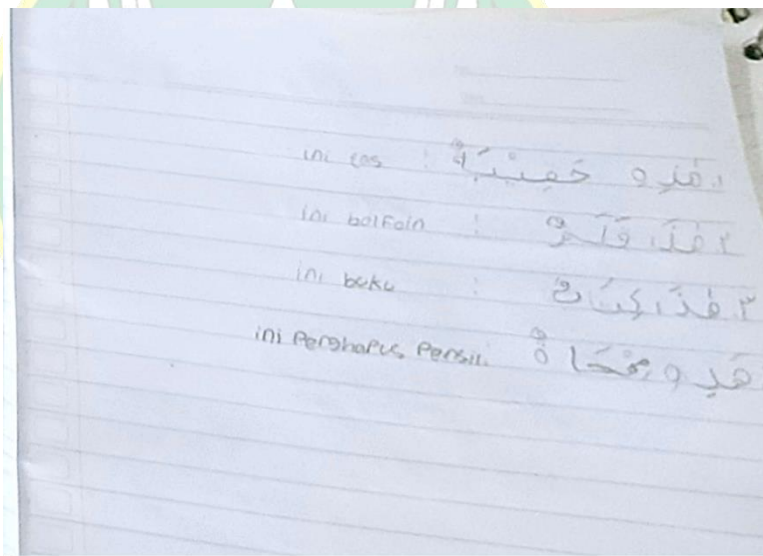 ini tas : ١. هٰذِهِ حَقِيْبَةٌ
ini bolfoin : ٢ هٰذَا قَلَمٌ
ini buku : ٣ هٰذَا كِتَابٌ
ini Penghapus Pensil. هَذِهِ مِمْحَاةٌ